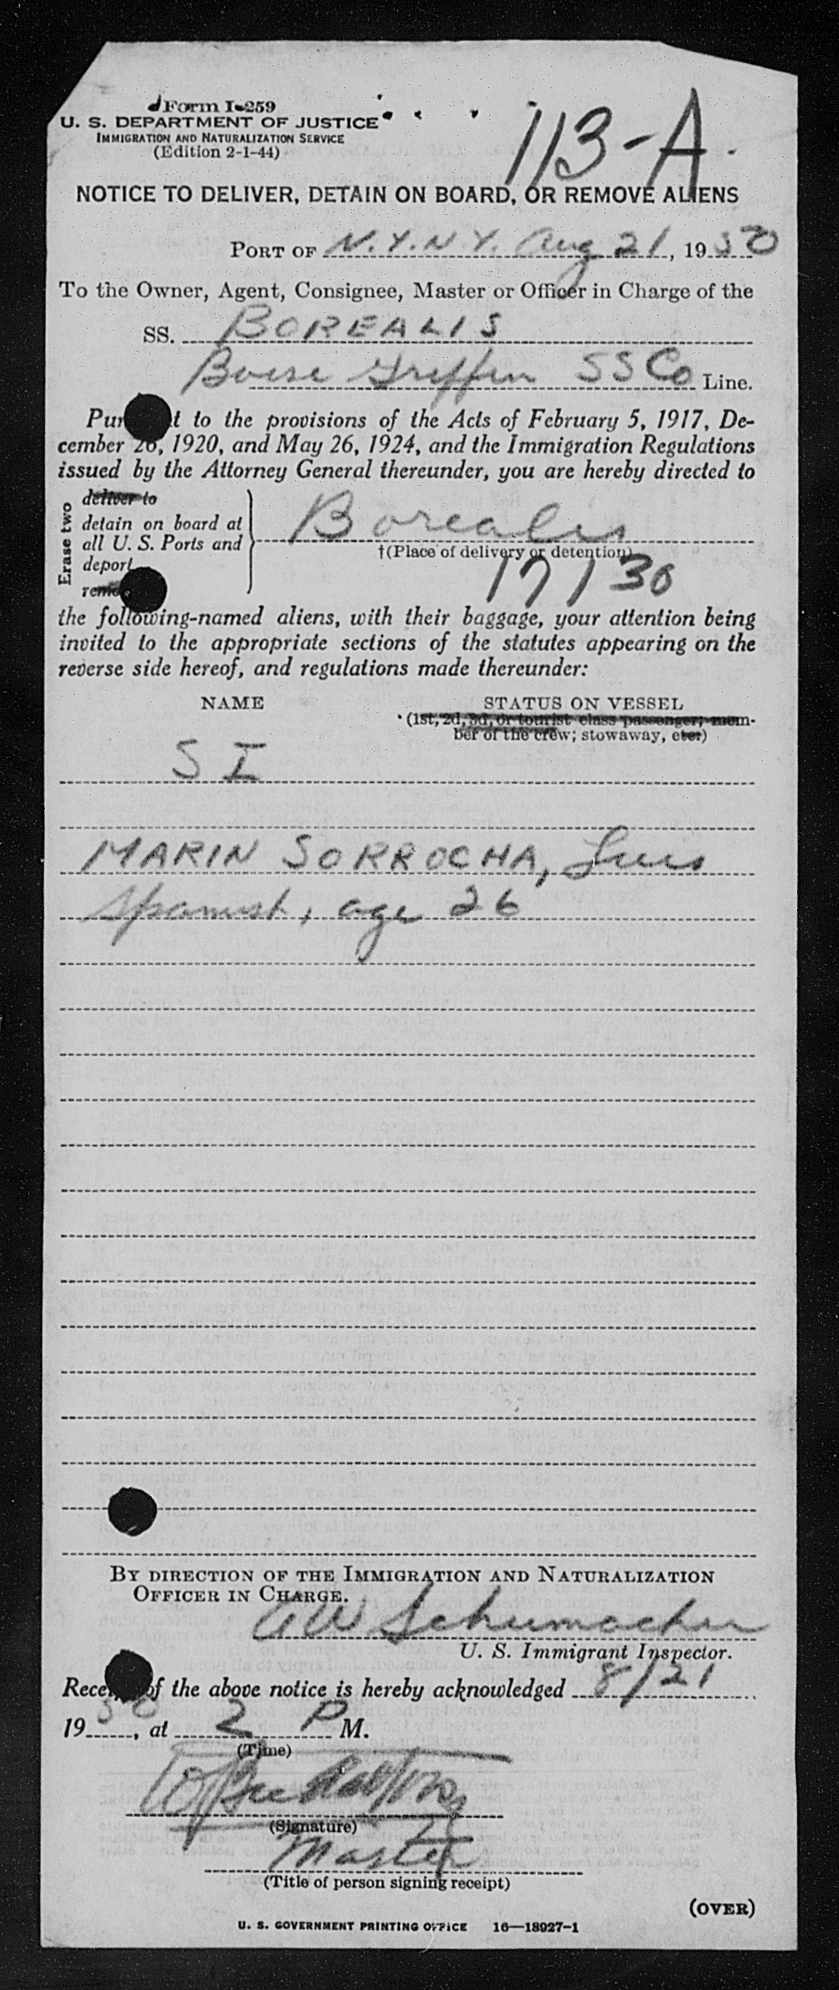 Form I-259
U. S. DEPARTMENT OF JUSTICE
IMMIGRATION AND NATURALIZATION SERVICE
(Edition 2-1-44)
113-A
NOTICE TO DELIVER, DETAIN ON BOARD, OR REMOVE ALIENS
PORT OF N.Y.N.Y. Aug 21, 1950
To the Owner, Agent, Consignee, Master or Officer in Charge of the
SS. BOREALIS
Boise Griffin SS Co Line.
Pur t to the provisions of the Acts of February 5, 1917, De-
cember 26, 1920, and May 26, 1924, and the Immigration Regulations
issued by the Attorney General thereunder, you are hereby directed to
Erase two
deliver to
detain on board at
all U. S. Ports and
deport
remo
Borealis
†(Place of delivery or detention)
17130
the following-named aliens, with their baggage, your attention being
invited to the appropriate sections of the statutes appearing on the
reverse side hereof, and regulations made thereunder:
NAME STATUS ON VESSEL
(1st, 2d, 3d, or tourist class passenger; mem-
ber of the crew; stowaway, etc.)
S I
MARIN SORROCHA, Luis
Spanish, age 26
BY DIRECTION OF THE IMMIGRATION AND NATURALIZATION
OFFICER IN CHARGE.
AW Schumacher
U. S. Immigrant Inspector.
Rece of the above notice is hereby acknowledged 8/21
1950, at 2 P M.
(Time)
(Signature)
Master
(Title of person signing receipt)
(OVER)
U. S. GOVERNMENT PRINTING OFFICE 16—18927-1